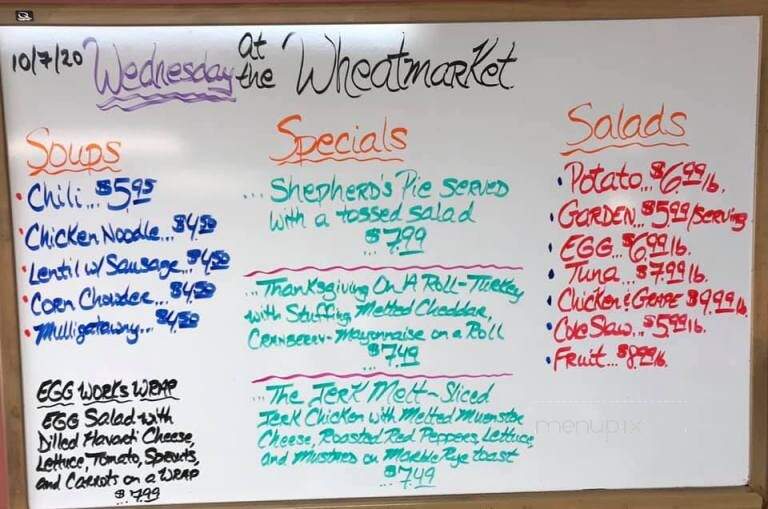 10/7/20 Wednesday at the Wheatmarket
Soups
• Chili... $5.95
• Chicken Noodle... $4.50
• Lentil w/ Sausage... $4.50
• Corn Chowder... $4.50
• Mulligatawny... $4.50
EGG WORKS WRAP
EGG Salad with
Dilled Havarti Cheese,
Lettuce, Tomato, Sprouts,
and Carrots on a WRAP
$7.99
Specials
... SHEPHERD'S Pie SERVED
with a tossed salad
$7.99
... Thanksgiving On A Roll-Turkey
with Stuffing Melted Cheddar,
CRANBERRY-Mayonnaise on a Roll
$7.49
... The JERK Melt-Sliced
Jerk Chicken with Melted Muenster
Cheese, Roasted Red Peppers, Lettuce,
and Mustard on Marble Rye toast
$7.49
Salads
• Potato... $6.99 lb.
• GARDEN... $5.99/serving
• EGG... $6.99 lb.
• Tuna... $7.99 lb.
• Chicken & GRAPE $9.99 lb.
• Cole Slaw... $5.99 lb.
• Fruit... $8.99 lb.
menupix